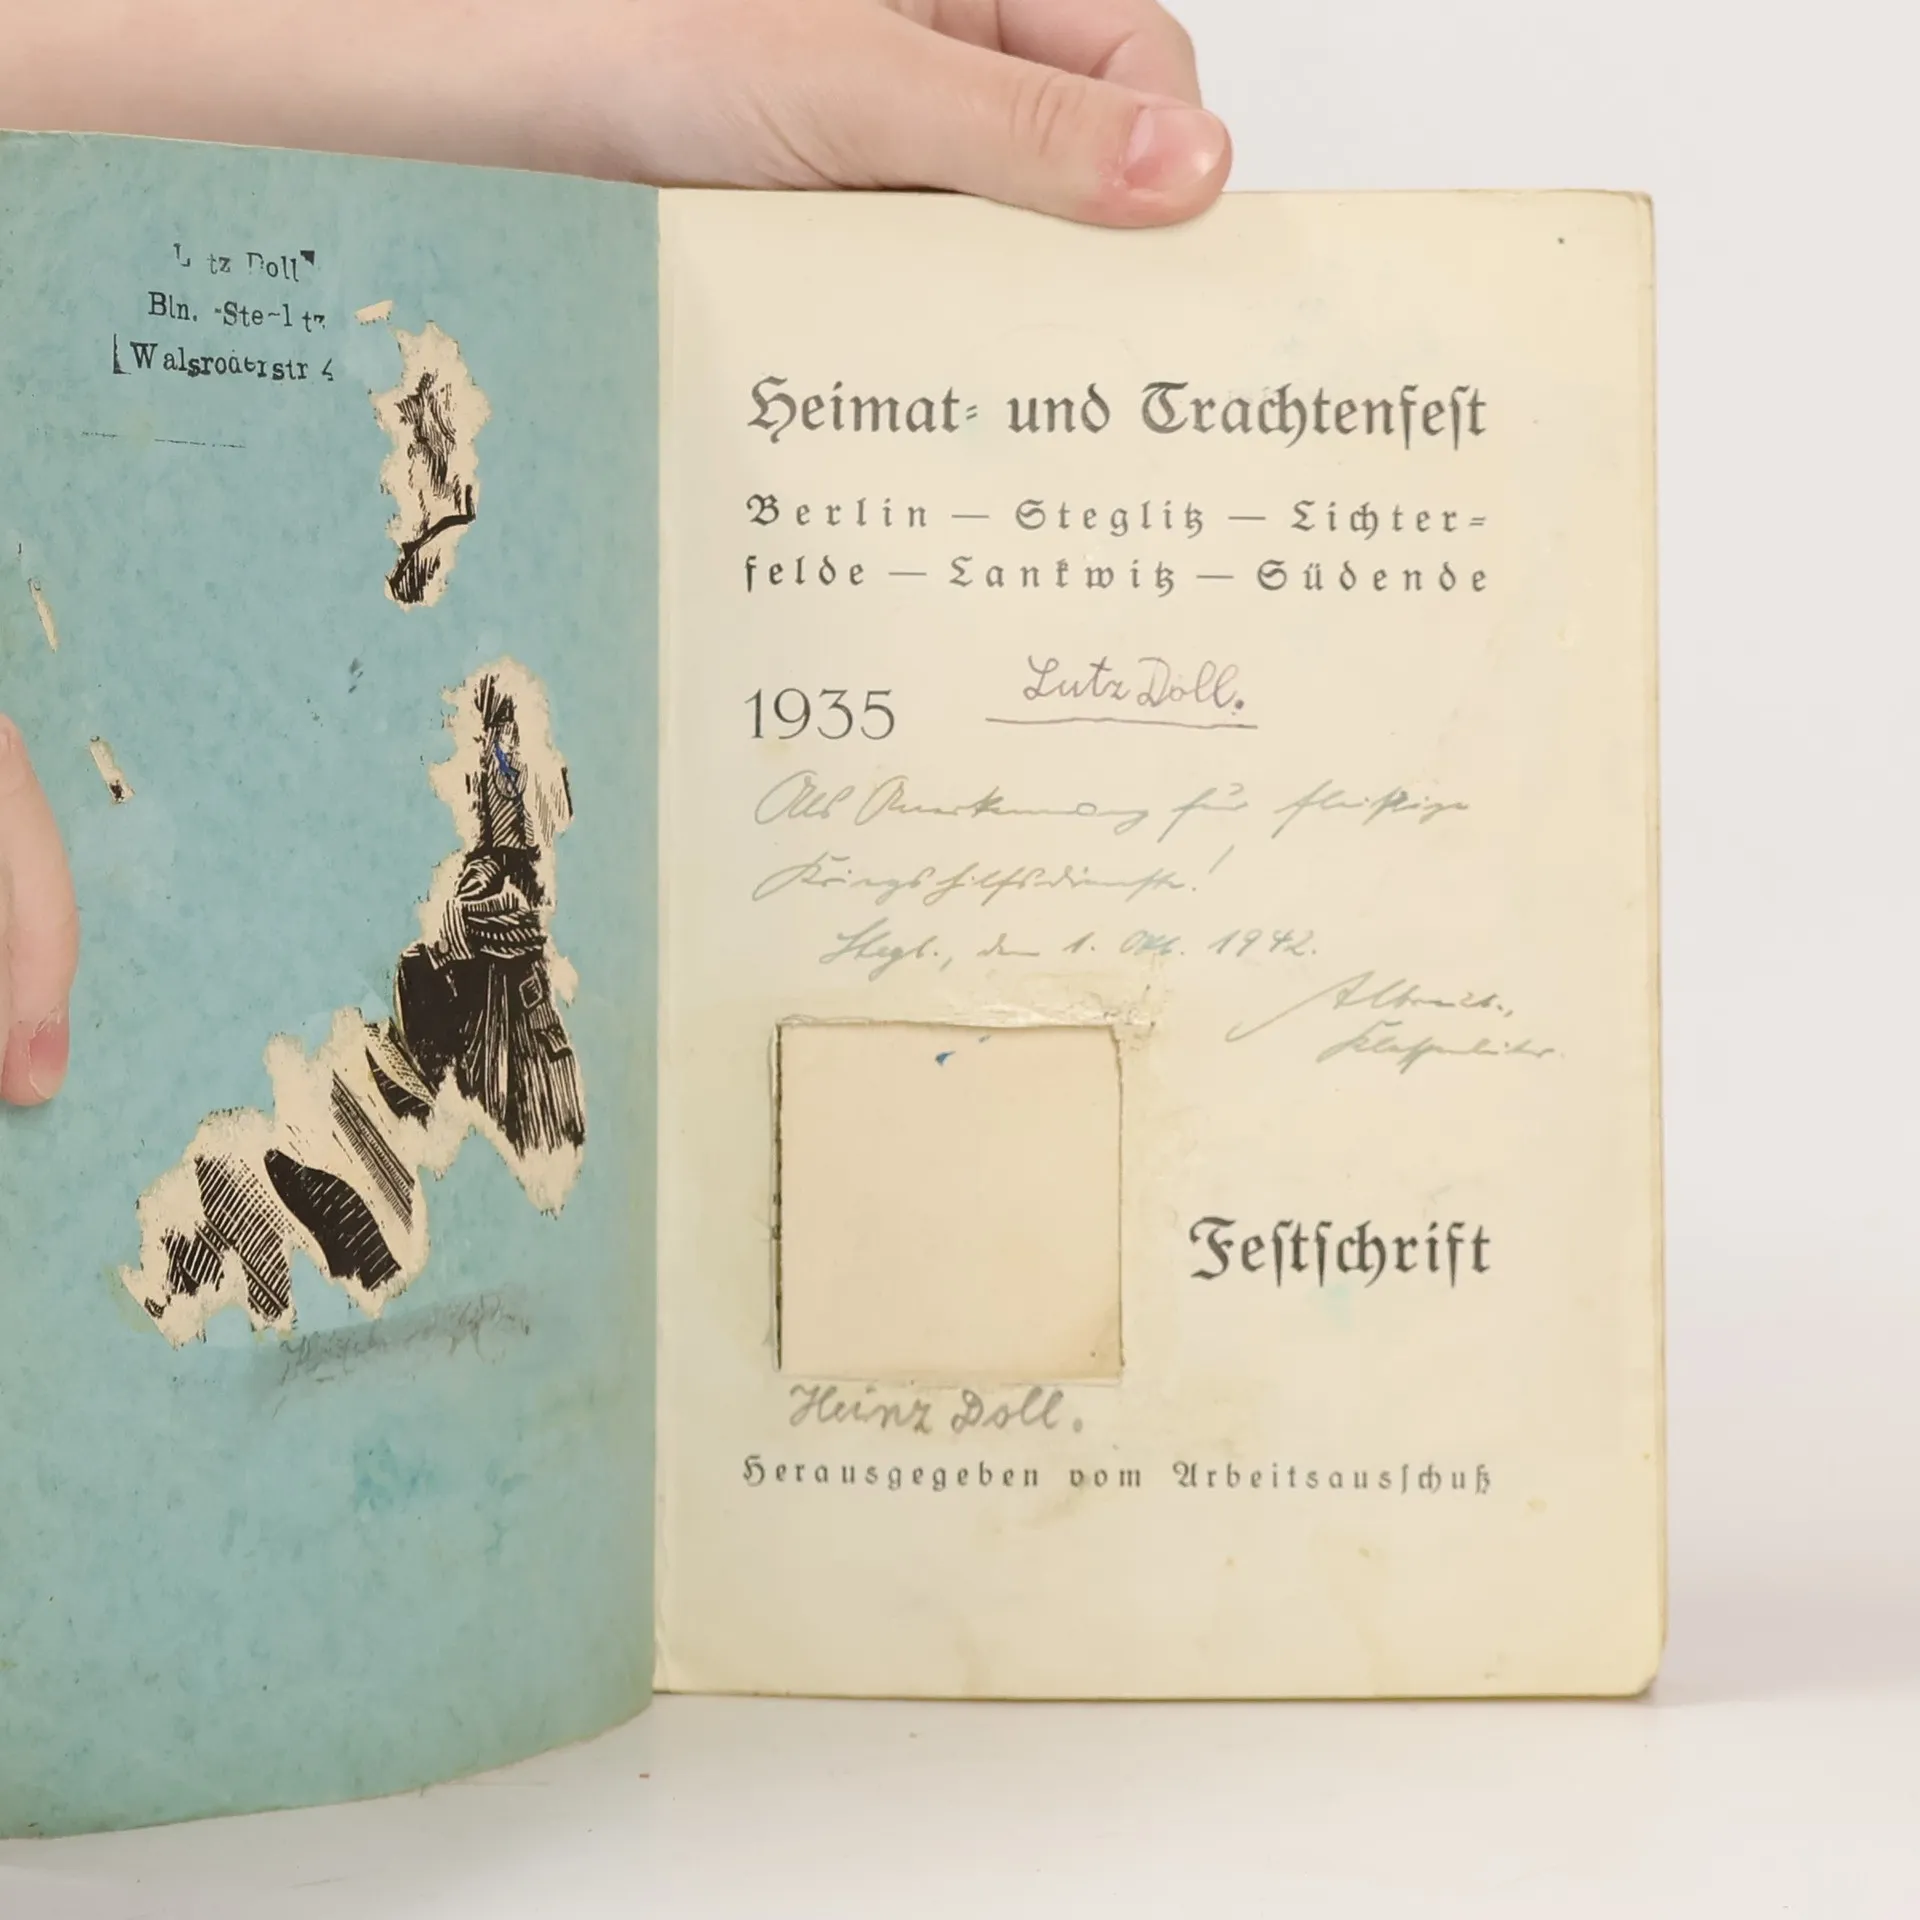 L tz Doll
Bln. -Ste-l tz
Walsroderstr 4
Heimat- und Trachtenfest
Berlin — Steglitz — Lichter-
felde — Lankwitz — Südende
1935
Lutz Doll.
Als Anerkennung für fleißige
Kriegshilfsdienste!
Stegl., den 1. Okt. 1942.
Klassenleiter.
Festschrift
Heinz Doll.
Herausgegeben vom Arbeitsausschuß